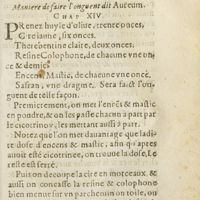 Maniere de faire l'onguent dit Aureum.
CHAP XIV.
PRenez huyle d'oliue, trente onces,
Cire iaune, six onces.
Therebentine claire, deux onces.
Resine Colophone, de chacune vne on-
ce & demie.
Encens, Mastic, de chacune vne once.
Safran, vne dragme. Sera faict l'on-
guent de telle façon.
Premierement, on met l'encēs & mastic
en poudre, & on les passe chacun à part par
le cicotrin, les mettant aussi à part.
Notez que l'on met dauantage que ladi-
te dose d'encens & mastic, afin qu'apres
auoir esté cicotrinez, on trouue la dose. Le
reste est
Puis on decoupe la cire en morceaux, &
aussi on concasse la resine & colophone
bien menus sur vn parchemin ou toile, ou